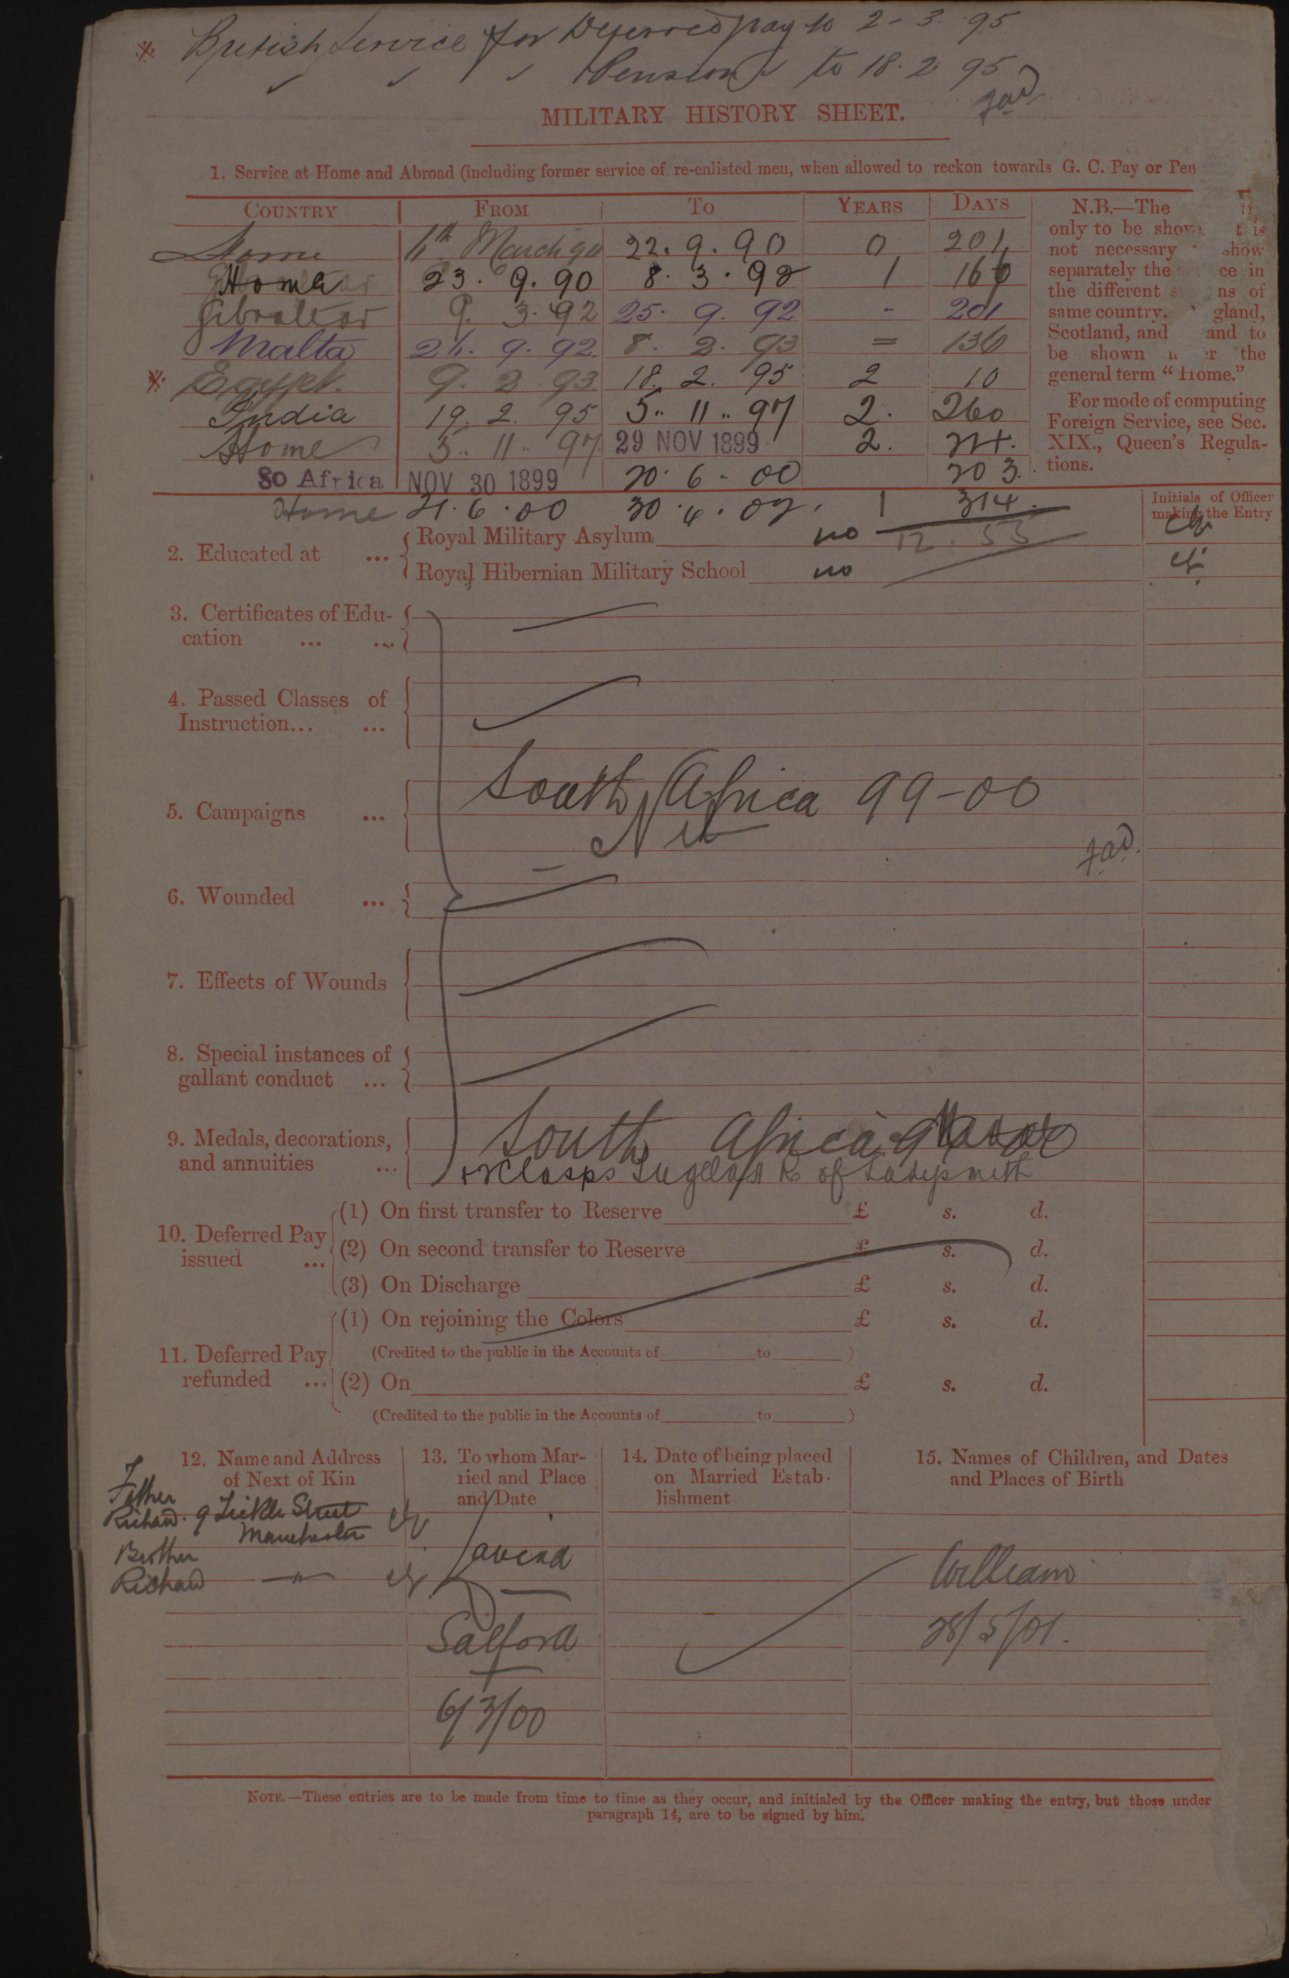 * British Service for Deferred pay to 2-3.95
" " " Pension to 18.2.95
MILITARY HISTORY SHEET.
1. Service at Home and Abroad (including former service of re-enlisted men, when allowed to reckon towards G. C. Pay or Pen
COUNTRY FROM TO YEARS DAYS
Home 6th March 90 22.9.90 0 201
Home 23.9.90 8.3.92 1 166
Gibraltar 9.3.92 25.9.92 - 201
Malta 26.9.92 8.2.93 = 136
* Egypt. 9.2.93 18.2.95 2 10
India 19.2.95 5.11.97 2. 260
Home 5.11.97 29 NOV 1899 2. 24.
SO Africa NOV 30 1899 20.6.00 203.
Home 21.6.00 30.4.02. 1 314.
12.55
N.B.—The
only to be show t is
not necessary show
separately the ce in
the different s ns of
same country. gland,
Scotland, and and to
be shown er the
general term “Home.”
For mode of computing
Foreign Service, see Sec.
XIX., Queen's Regula-
tions.
Initials of Officer
making the Entry
2. Educated at ... Royal Military Asylum no
Royal Hibernian Military School no
3. Certificates of Edu-
cation ... ...
4. Passed Classes of
Instruction... ...
5. Campaigns ... South Africa 99-00
6. Wounded ...
7. Effects of Wounds
8. Special instances of
gallant conduct ...
9. Medals, decorations, South Africa
and annuities ... Clasps Tugela R of Ladysmith
10. Deferred Pay issued ... (1) On first transfer to Reserve £ s. d.
(2) On second transfer to Reserve £ s. d.
(3) On Discharge £ s. d.
11. Deferred Pay refunded ... (1) On rejoining the Colors £ s. d.
(Credited to the public in the Accounts of to )
(2) On £ s. d.
(Credited to the public in the Accounts of to )
12. Name and Address
of Next of Kin
Father
Richard. 9 Tickle Street
Manchester
Brother
Richard —"—
13. To whom Mar-
ried and Place
and Date
Salford
6/3/00
14. Date of being placed
on Married Estab-
lishment
15. Names of Children, and Dates
and Places of Birth
William
28/5/01.
NOTE.—These entries are to be made from time to time as they occur, and initialed by the Officer making the entry, but those under
paragraph 14, are to be signed by him.